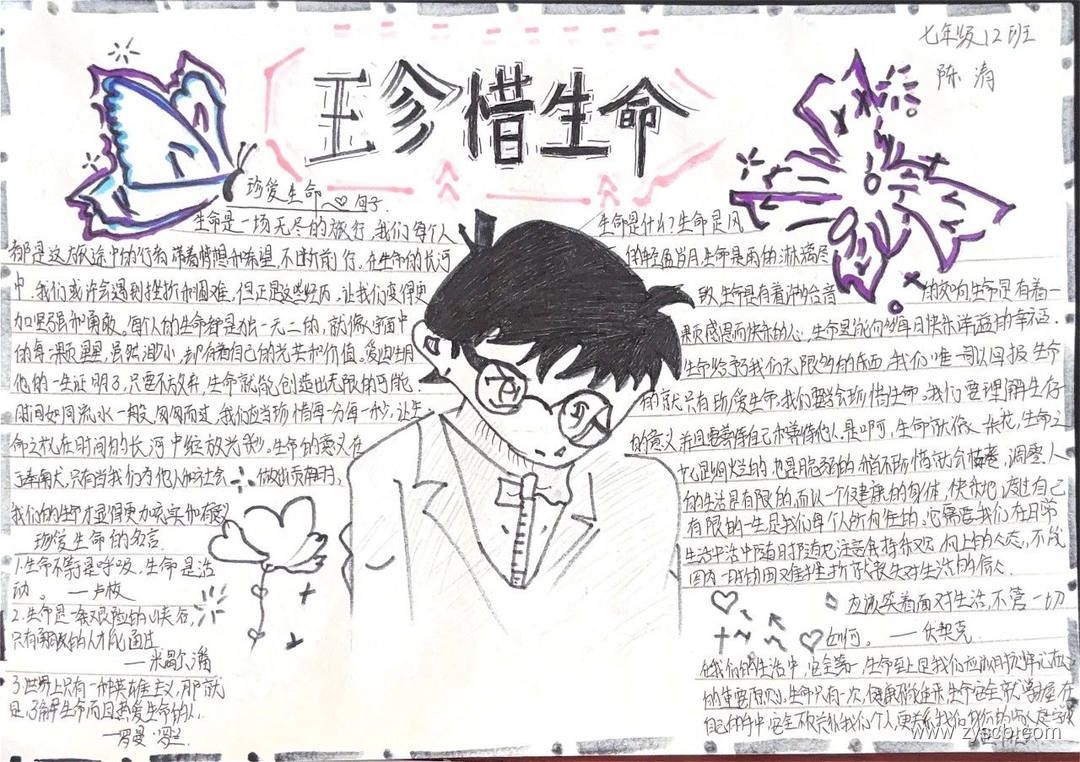 七年级12班
陈涓
珍惜生命
珍爱生命 句子
生命是一场无尽的旅行,我们每个人
都是这旅途中的行者,带着梦想和希望,不断前行。在生命的长河
中,我们或许会遇到挫折和困难,但正是这些经历,让我们变得更
加坚强和勇敢。每个人的生命都是独一无二的,就像宇宙中
的每一颗星星,虽然渺小,却有着自己的光芒和价值。爱
他的一生证明了,只要不放弃,生命就能创造出无限的可能.
时间如同流水一般,匆匆而过,我们应当珍惜每一分每一秒,让生
命之花在时间的长河中绽放光彩。生命的意义在
于奉献,只有当我们为他人和社会做出贡献时,
我们的生命才显得更加充实和有意义
珍爱生命的名言
1.生命不等于是呼吸,生命是活
动。 —卢梭
2.生命是一条艰险的峡谷,
只有勇敢的人才能通过
—米歇潘
3.世界上只有一种英雄主义,那就
是了解生命而且热爱生命的人.
—罗曼·罗兰
生命是什么?生命是风
的轻 生命是雨的淋漓尽
致,生命是有着 的交响,生命是有着一
颗感恩而快乐的心,生命是 每日快乐洋溢的幸福.
生命给予我们无限多的东西,我们唯一可以回报生命
的就只有珍爱生命,我们要学会珍惜生命,我们要理解生存
的意义,并且要善待自己和善待他人.是啊,生命就像一朵花,生命之
花是灿烂的,也是脆弱的,稍不珍惜就会枯萎,凋零,人
的生活是有限的,而以一个健康的身体,快乐地度过自己
有限的一生是我们每个人所向往的。它需要我们在日常
生活中 注意保持乐观、向上的心态,不能
因为一时的困难挫折就丧失对生活的信心.
应该笑着面对生活,不管一切
如何。 —伏契克
在我们的生活中,安全第一,生命至上是我们应
的重要原则.生命只有一次,健康 生命安全就掌握在
自己的手中,安全不仅关系我们个人,更关系
www.zyscp.com